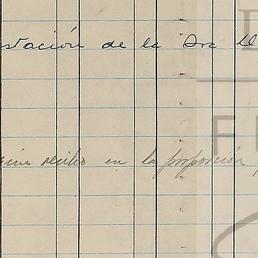 stación de la Sra D
recibo en la proporción